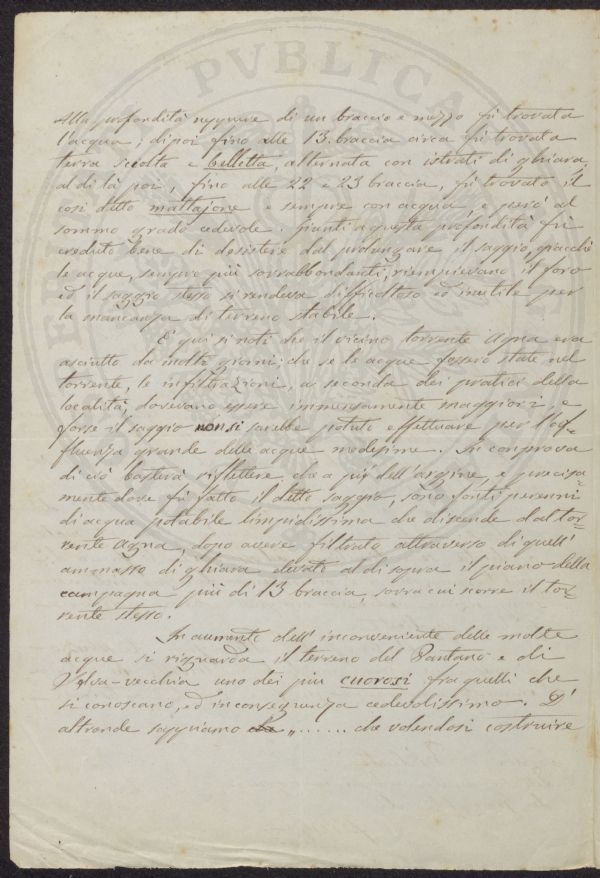 Alla profondità neppure di un braccio e mezzo fù trovata
l'acqua; dipoi fino alle 13. braccia circa fù trovata
terra sciolta e belletta, alternata con istrati di ghiara,
al di là poi, fino alle 22 e 23 braccia, fù trovato il
così detto mattajone e sempre con acqua, e però al
sommo grado cedevole. Giunti a questa profondità fù
creduto bene di desistere dal prolungare il saggio, giacchè
le acque, sempre più sovrabbondanti, riempievano il foro
ed il saggio stesso si rendeva difficoltoso ed inutile per
la mancanza di terreno stabile.
E qui si noti che il vicino torrente Agna era
asciutto da molti giorni; che se le acque fossero state nel
torrente, le infiltrazioni, a seconda dei pratici della
località, dovevano essere immensamente maggiori, e
forse il saggio non si sarebbe potuto effettuare per l'af-
fluenza grande delle acque medesime. In comprova
di ciò basterà riflettere, che a piè dell'argine, e precisa-
mente dove fù fatto il detto saggio, sono fonti perenni
di acqua potabile limpidissima che discende dal tor-
rente Agna, dopo avere filtrato attraverso di quell'
ammasso di ghiara elevati al di sopra il piano della
campagna più di 13 braccia, sovra cui scorre il tor-
rente stesso.
In aumento dell'inconveniente delle molte
acque si risguarda il terreno del Pantano e di
vecchia uno dei più cuorosi fra quelli che
si conoscano, ed in conseguenza cedevolissimo. D'
altronde sappiamo che „...... che volendosi costruire
PVBLICA